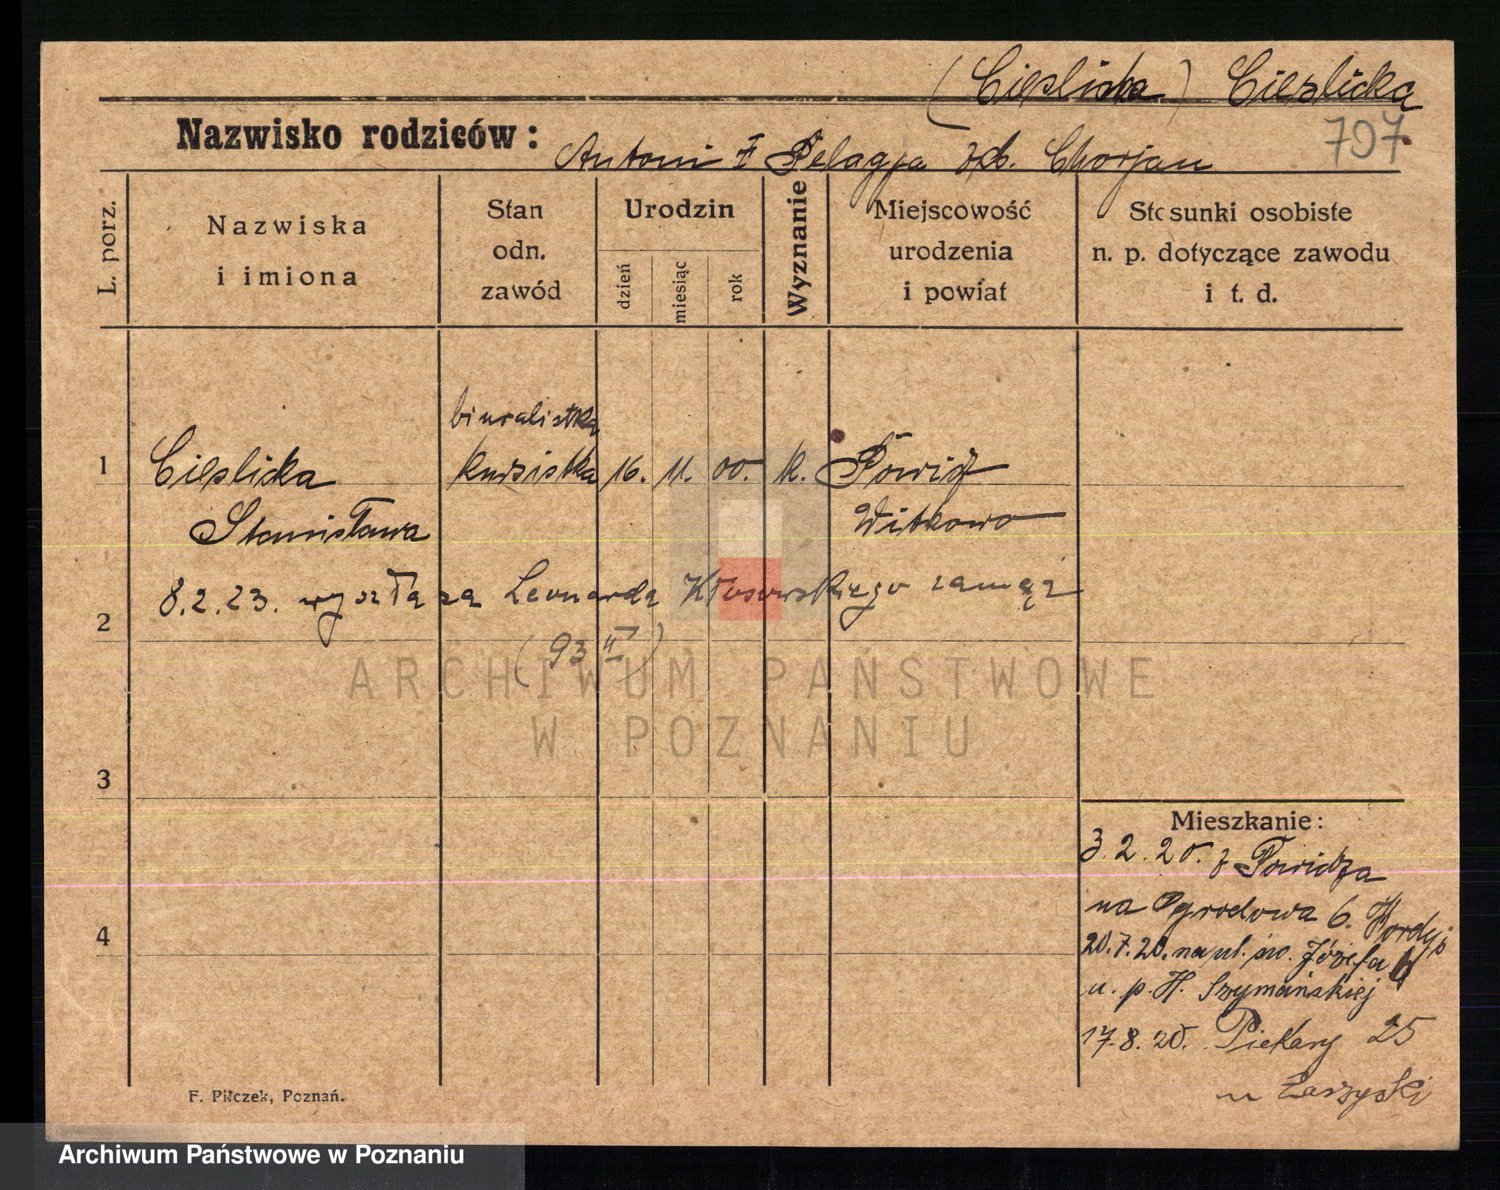 (Cieślicka) Cieślicka
Nazwisko rodziców: Antoni i Pelagja zd. Chorjan
797
L. porz.
Nazwiska i imiona
Stan odn. zawód
Urodzin
dzień
miesiąc
rok
Wyznanie
Miejscowość urodzenia i powiat
Stosunki osobiste n. p. dotyczące zawodu i t. d.
biuralistka
1 Cieślicka kursistka 16. 11. 00. k. Powidz
Stanisława Witkowo
8.2.23. wyszła za Leonarda Kłosowskiego zamąż
2
(93 II)
ARCHIWUM PAŃSTWOWE
W POZNANIU
3
Mieszkanie:
3.2.20. z Powidza
na Ogrodowa 6.
4
20.7.20. na ul. św. Józefa 6
u. p. H. Szymańskiej
17.8.20. Piekary 25
u Łaszyski
F. Pilczek, Poznań.
Archiwum Państwowe w Poznaniu